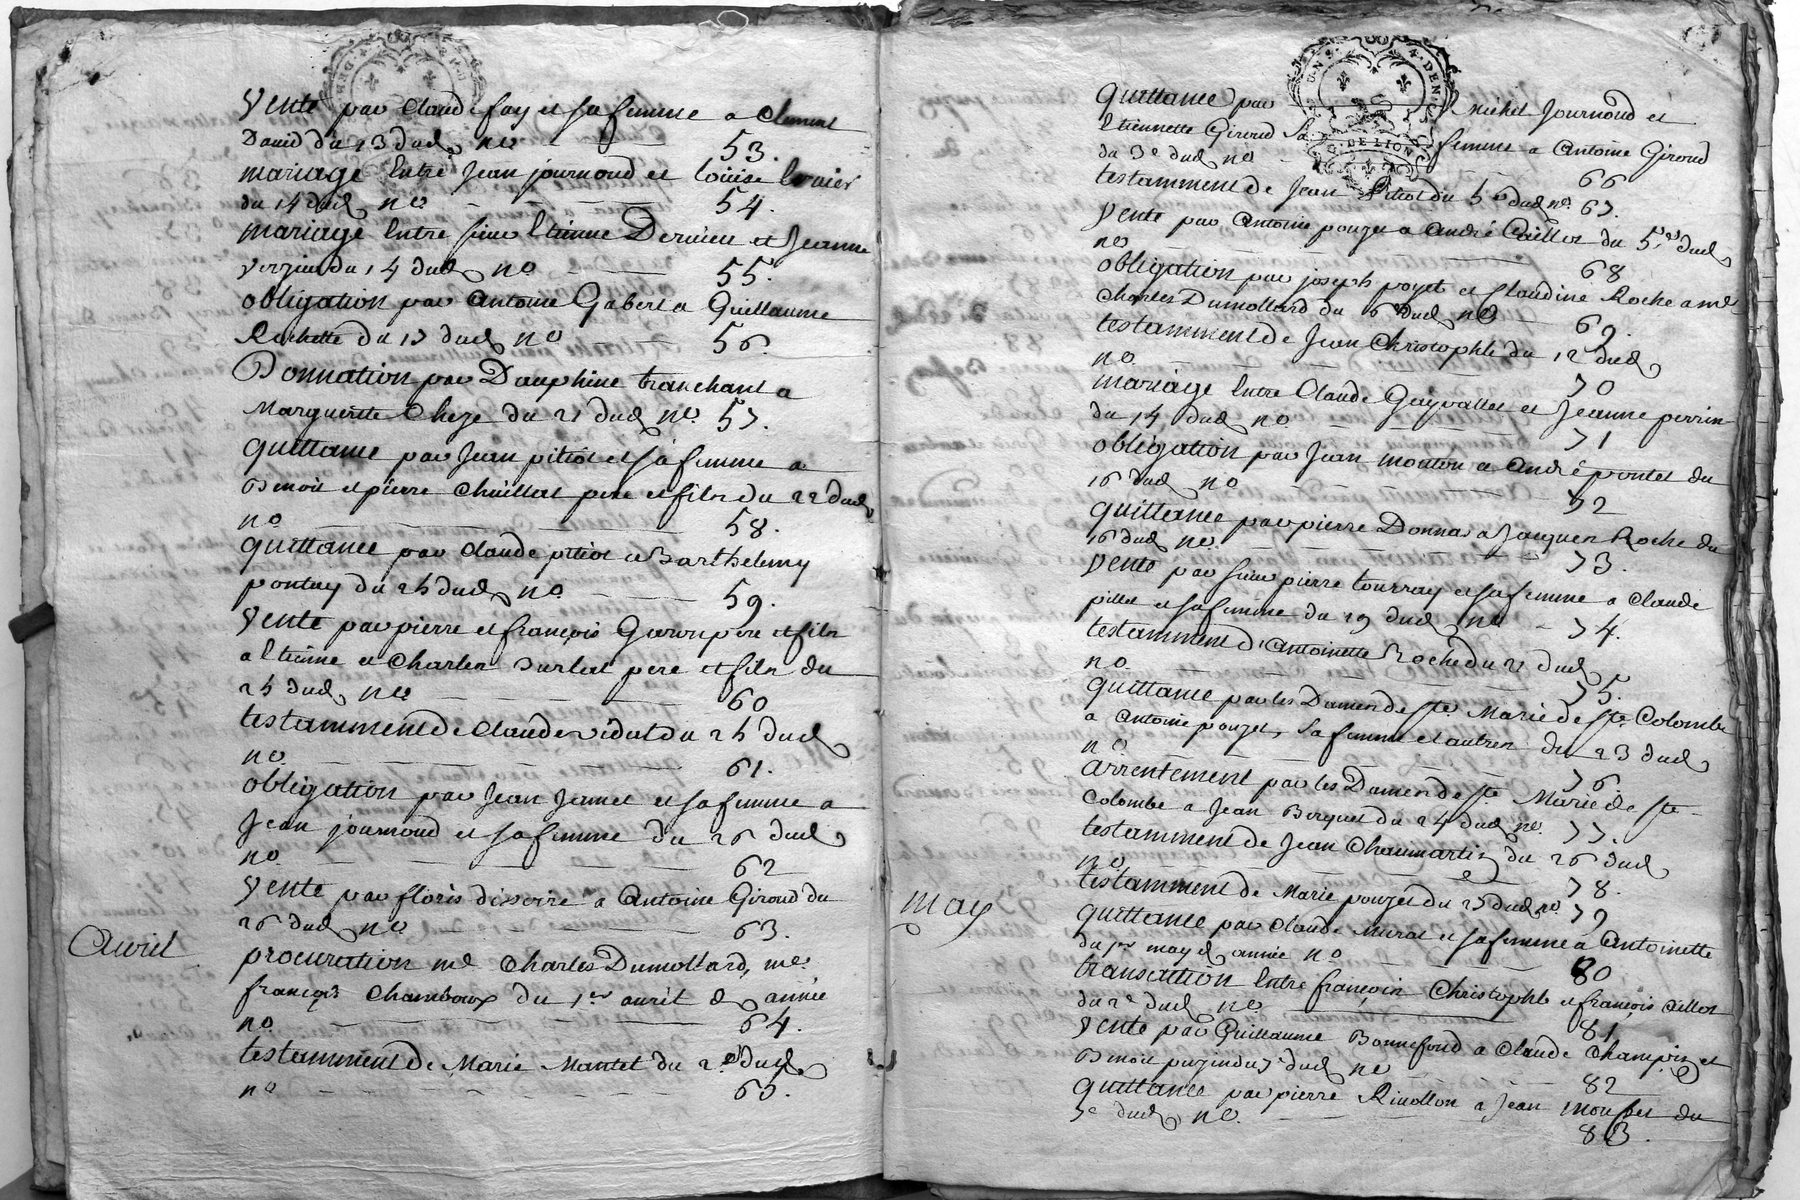 Vente par Claude fay et sa femme a Clement
David du 13 dud. no 53.
mariage Entre Jean journoud et Louise
du 14 dud. no 54.
mariage Entre sieur Etienne Derieu et Jeanne
du 14 dud. no 55.
obligation par Antoine Gabert a Guillaume
Rochette du 15 dud. no 56.
Donnation par Dauphine tranchant a
Marguerite Cheze du 21 dud. no. 57.
quittance par Jean pitiot et sa femme a
Benoit et pierre Chuillat pere et fils du 22 dud.
no 58.
quittance par Claude pitiot a Barthelemy
du 25 dud. no. 59.
Vente par pierre et françois Gueron pere et fils
a Etienne et Charles Surlat pere et fils du
25 dud. no 60
testamment de Claude vidal du 25 dud.
no. 61.
obligation par Jean Jamet et sa femme a
Jean journoud et sa femme du 26 dud.
no. 62
Vente par floris disserre a Antoine Giroud du
26 dud. no. 63.
Avril
procuration me Charles Dumollard, me.
françois Chamboux du 1er avril d. année
no. 64.
testamment de Marie Mantel du 2e dud.
no 65.
quittance par Michel Journoud et
Etiennette Giroud sa femme a Antoine Giroud
du 3e dud. no 66
testamment de Jean Pitiot du 5e dud. no. 67.
Vente par Antoine pouzet a André Caillot du 5e dud.
no 68
obligation par joseph poyet et Claudine Roche a me
Charles Dumollard du 6e dud. no 69.
testamment de Jean Christophle du 12 dud.
no 70
mariage Entre Claude Guyvallet et Jeanne perrin
du 14 dud. no 71
obligation par Jean mouton a André pontet du
16 dud. no 72
quittance par pierre Donnas a Jacques Roche du
16 dud. no. 73.
Vente par sieur pierre tourray et sa femme a Claude
pillot et sa femme du 19 dud. no 74.
testamment d'Antoinette Roche du 21 dud.
no 75.
quittance par les Dames de Ste. Marie de Ste Colombe
a Antoine pouzet, sa femme et autres du 23 dud.
no 76.
arrentement par les Dames de Ste Marie de Ste
Colombe a Jean Berquet du 24 dud. no. 77.
testamment de Jean Chaumartin du 26 dud.
no 78.
testamment de Marie pouzet du 25 dud. no. 79
may
quittance par Claude Murat et sa femme a Antoinette
du 1er may d. année no. 80
transcation Entre françois Christophle et françois Caillot
du 2e dud. no. 81
Vente par Guillaume Bonnefond a Claude Champin et
Benoit du 7e dud. no 82
quittance par pierre Rivollon a Jean Mousset du
7e dud. no. 83.
G. DE LION